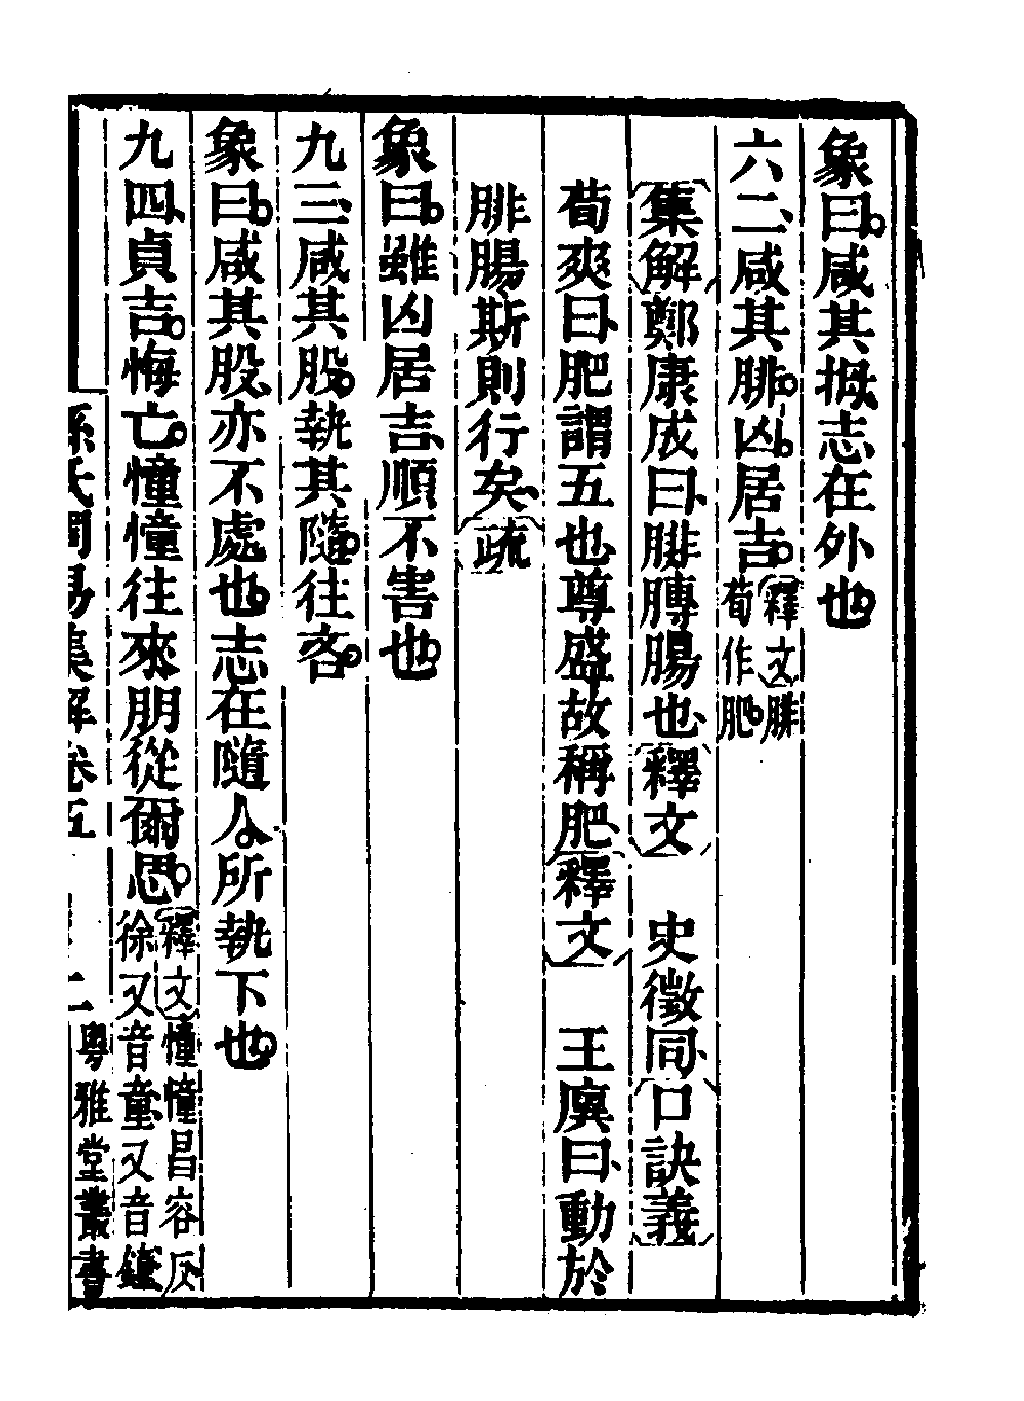 象曰咸其拇志在外也
六二咸其腓凶居吉釋文腓荀作肥
集解鄭康成曰腓膞腸也釋文 史徵同口訣義
荀爽曰肥謂五也尊盛故稱肥釋文 王廙曰動於
腓腸斯則行矣疏
象曰雖凶居吉順不害也
九三咸其股執其隨往吝
象曰咸其股亦不處也志在隨人所執下也
九四貞吉悔亡憧憧往來朋從爾思釋文憧憧昌容反徐又音童又音鍾
孫氏周易集解卷五 二 粵雅堂叢書